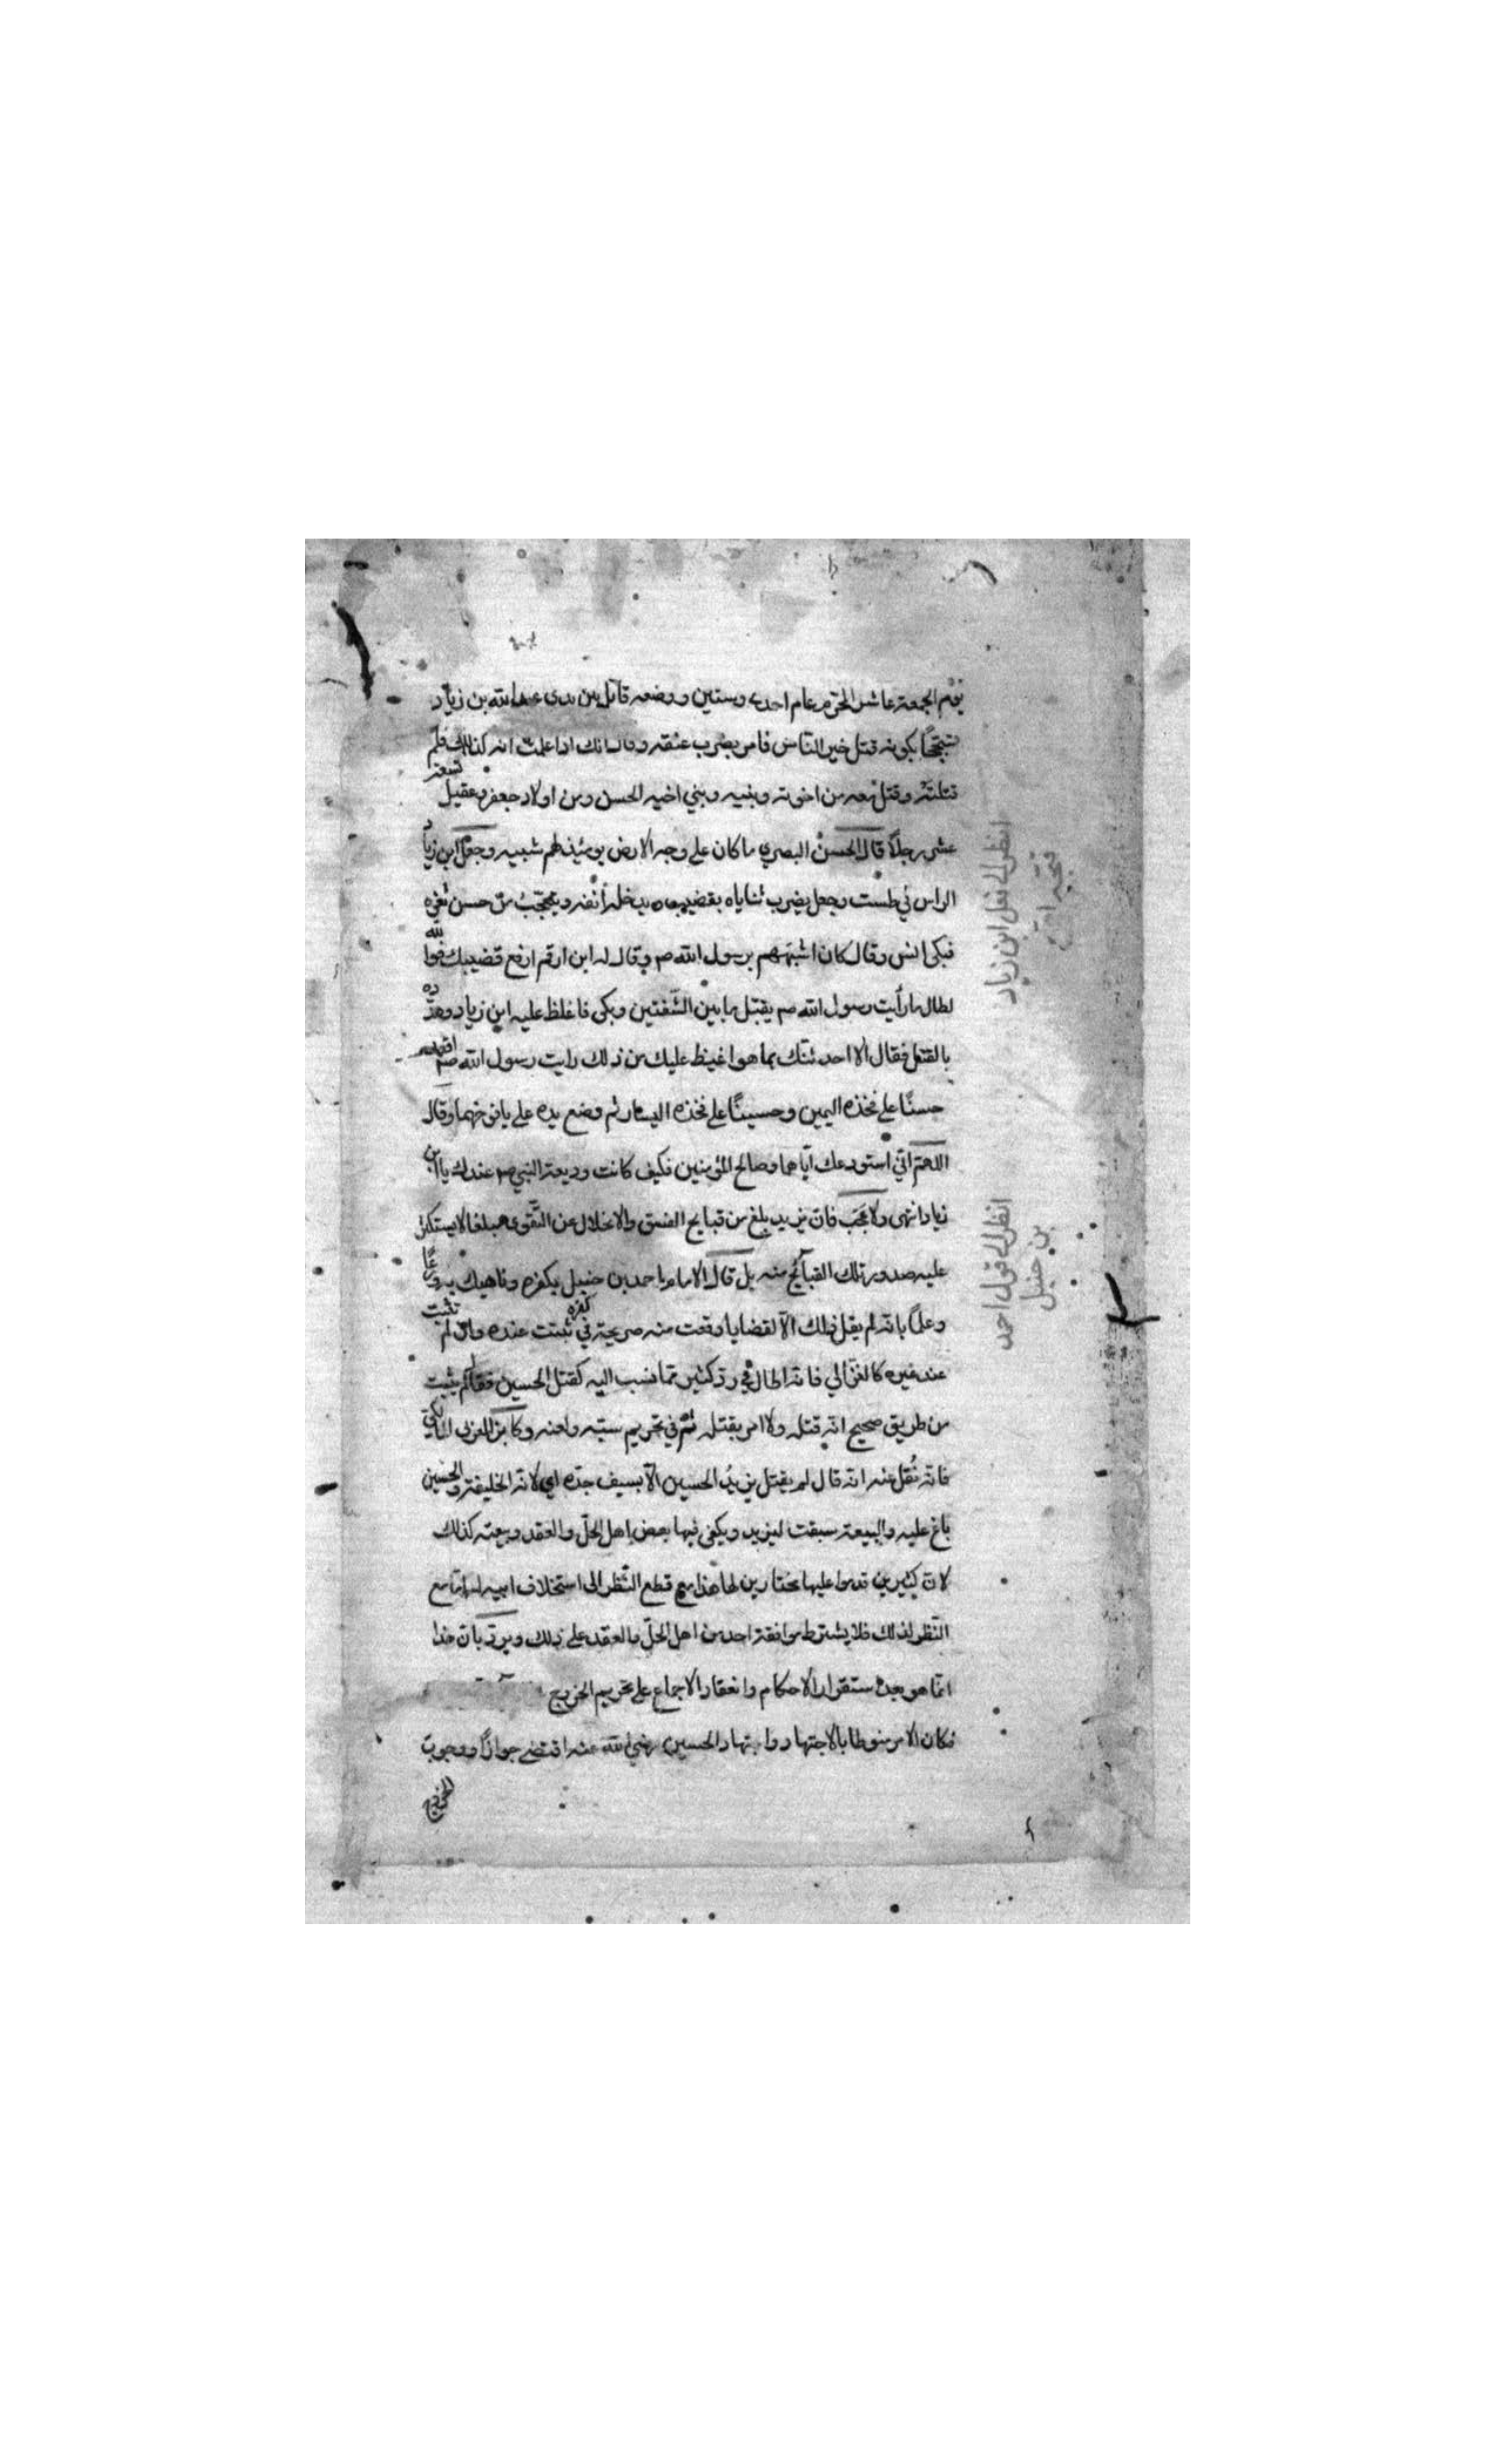 يوم الجمعة عاشر المحرم عام احدى وستين ووضعه قاتله بين يدى عبد الله بن زياد
تبجحًا بكونه قتل خير الناس فامر بضرب عنقه وقال انك اذا علمت انه كذلك فلم
قتلته وقتل معه من اخوته وبنيه وبني اخيه الحسن ومن اولاد جعفر وعقيل تسعة
عشر رجلاً قال الحسن البصري ما كان على وجه الارض يومئذ لهم شبيه وجعل ابن زياد
الراس في طست وجعل يضرب ثناياه بقضيب يدخله أنفه ويتعجّب من حسن ثغره
فبكى انس وقال كان اشبههم برسول الله صم وقال له ابن ارقم ارفع قضيبك فوالله
لطال ما رأيت رسول الله صم يقبل ما بين الشفتين وبكى فاغلظ عليه ابن زياد وهدّده
بالقتل فقال الا احدثنّك بما هو اغيظ عليك من ذلك رايت رسول الله صم اقعد
حسنًا على فخذه اليمين وحسينًا على فخذه اليسار ثم وضع يده على يافوخهما وقال
اللهمّ انّي استودعك ايّاهما وصالح المؤمنين فكيف كانت وديعة النبي صم عندك يا ابن
زياد انتهى ولا عجب فان يزيد بلغ من قبايح الفسق والانحلال عن التّقوى مبلغا لا يستكثر
عليه صدور تلك القبائح منه بل قال الامام احمد بن حنبل بكفره وناهيك به ورعًا
وعلمًا بانه لم يقل ذلك الّا لقضايا وقعت منه صريحة في كفره ثبتت عنده وان لم تثبت
عند غيره كالغزّالي فانه اطال في ردّ كثير ممّا نسب اليه كقتل الحسين فقال لم يثبت
من طريق صحيح انّه قتله ولا امر بقتله ثمّ في تحريم سبّه ولعنه وكابن العربى المالكي
فانّه نُقل عنه انّه قال لم يقتل يزيدُ الحسين الّا بسيف جدّه اي لانّه الخليفة والحسين
باغ عليه والبيعة سبقت ليزيد ويكفى فيها بعض اهل الحلّ والعقد وبيعته كذلك
لانّ كثيرين قدموا عليها مختارين لها هذا مع قطع النّظر الى استخلاف ابيه له امّا مع
النّظر لذلك فلا يشترط موافقة احد من اهل الحلّ والعقد على ذلك ويردّ بانّ هذا
انّما هو بعد استقرار الاحكام وانعقاد الاجماع على تحريم الخروج
فكان الامر منوطا بالاجتهاد واجتهاد الحسين رضي الله عنه اقتضى جوازًا ووجوب
الخروج
انظر الى نقل ابن زياد
انظر الى قول احمد
بن حنبل